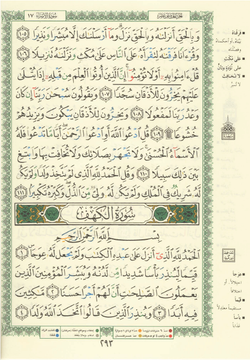 سُورَةُ الإِسْرَاءِ ١٧
وَبِالْحَقِّ أَنزَلْنَٰهُ وَبِالْحَقِّ نَزَلَ وَمَا أَرْسَلْنَٰكَ إِلَّا مُبَشِّرًا وَنَذِيرًا ١٠٥
وَقُرْءَانًا فَرَقْنَٰهُ لِتَقْرَأَهُ عَلَى النَّاسِ عَلَىٰ مُكْثٍ وَنَزَّلْنَٰهُ تَنزِيلًا ١٠٦
قُلْ ءَامِنُوا بِهِ أَوْ لَا تُؤْمِنُوا إِنَّ الَّذِينَ أُوتُوا الْعِلْمَ مِن قَبْلِهِ إِذَا يُتْلَىٰ
عَلَيْهِمْ يَخِرُّونَ لِلْأَذْقَانِ سُجَّدًا ١٠٧ وَيَقُولُونَ سُبْحَٰنَ رَبِّنَا إِن كَانَ
وَعْدُ رَبِّنَا لَمَفْعُولًا ١٠٨ وَيَخِرُّونَ لِلْأَذْقَانِ يَبْكُونَ وَيَزِيدُهُمْ
خُشُوعًا ۩ ١٠٩ قُلِ ادْعُوا اللَّهَ أَوِ ادْعُوا الرَّحْمَٰنَ أَيًّا مَّا تَدْعُوا فَلَهُ
الْأَسْمَاءُ الْحُسْنَىٰ وَلَا تَجْهَرْ بِصَلَاتِكَ وَلَا تُخَافِتْ بِهَا وَابْتَغِ
بَيْنَ ذَٰلِكَ سَبِيلًا ١١٠ وَقُلِ الْحَمْدُ لِلَّهِ الَّذِي لَمْ يَتَّخِذْ وَلَدًا وَلَمْ يَكُن
لَّهُ شَرِيكٌ فِي الْمُلْكِ وَلَمْ يَكُن لَّهُ وَلِيٌّ مِّنَ الذُّلِّ وَكَبِّرْهُ تَكْبِيرًا ١١١
سُورَةُ الْكَهْفِ
بِسْمِ اللَّهِ الرَّحْمَٰنِ الرَّحِيمِ
الْحَمْدُ لِلَّهِ الَّذِي أَنزَلَ عَلَىٰ عَبْدِهِ الْكِتَٰبَ وَلَمْ يَجْعَل لَّهُ عِوَجًا ١
قَيِّمًا لِّيُنذِرَ بَأْسًا شَدِيدًا مِّن لَّدُنْهُ وَيُبَشِّرَ الْمُؤْمِنِينَ الَّذِينَ
يَعْمَلُونَ الصَّٰلِحَٰتِ أَنَّ لَهُمْ أَجْرًا حَسَنًا ٢ مَّٰكِثِينَ
فِيهِ أَبَدًا ٣ وَيُنذِرَ الَّذِينَ قَالُوا اتَّخَذَ اللَّهُ وَلَدًا ٤
٢٩٣